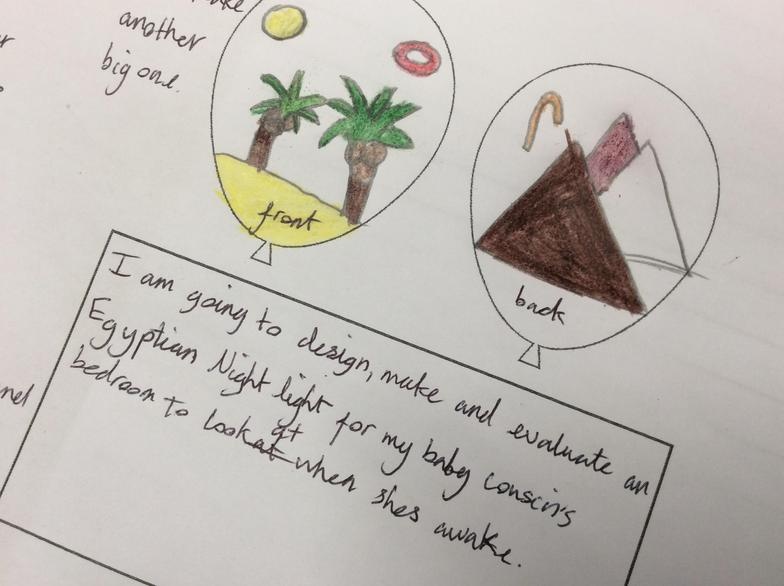 another
big one.
front
back
I am going to design, make and evaluate an
Egyptian Night light for my baby conscin's
bedroom to look at when shes awake.